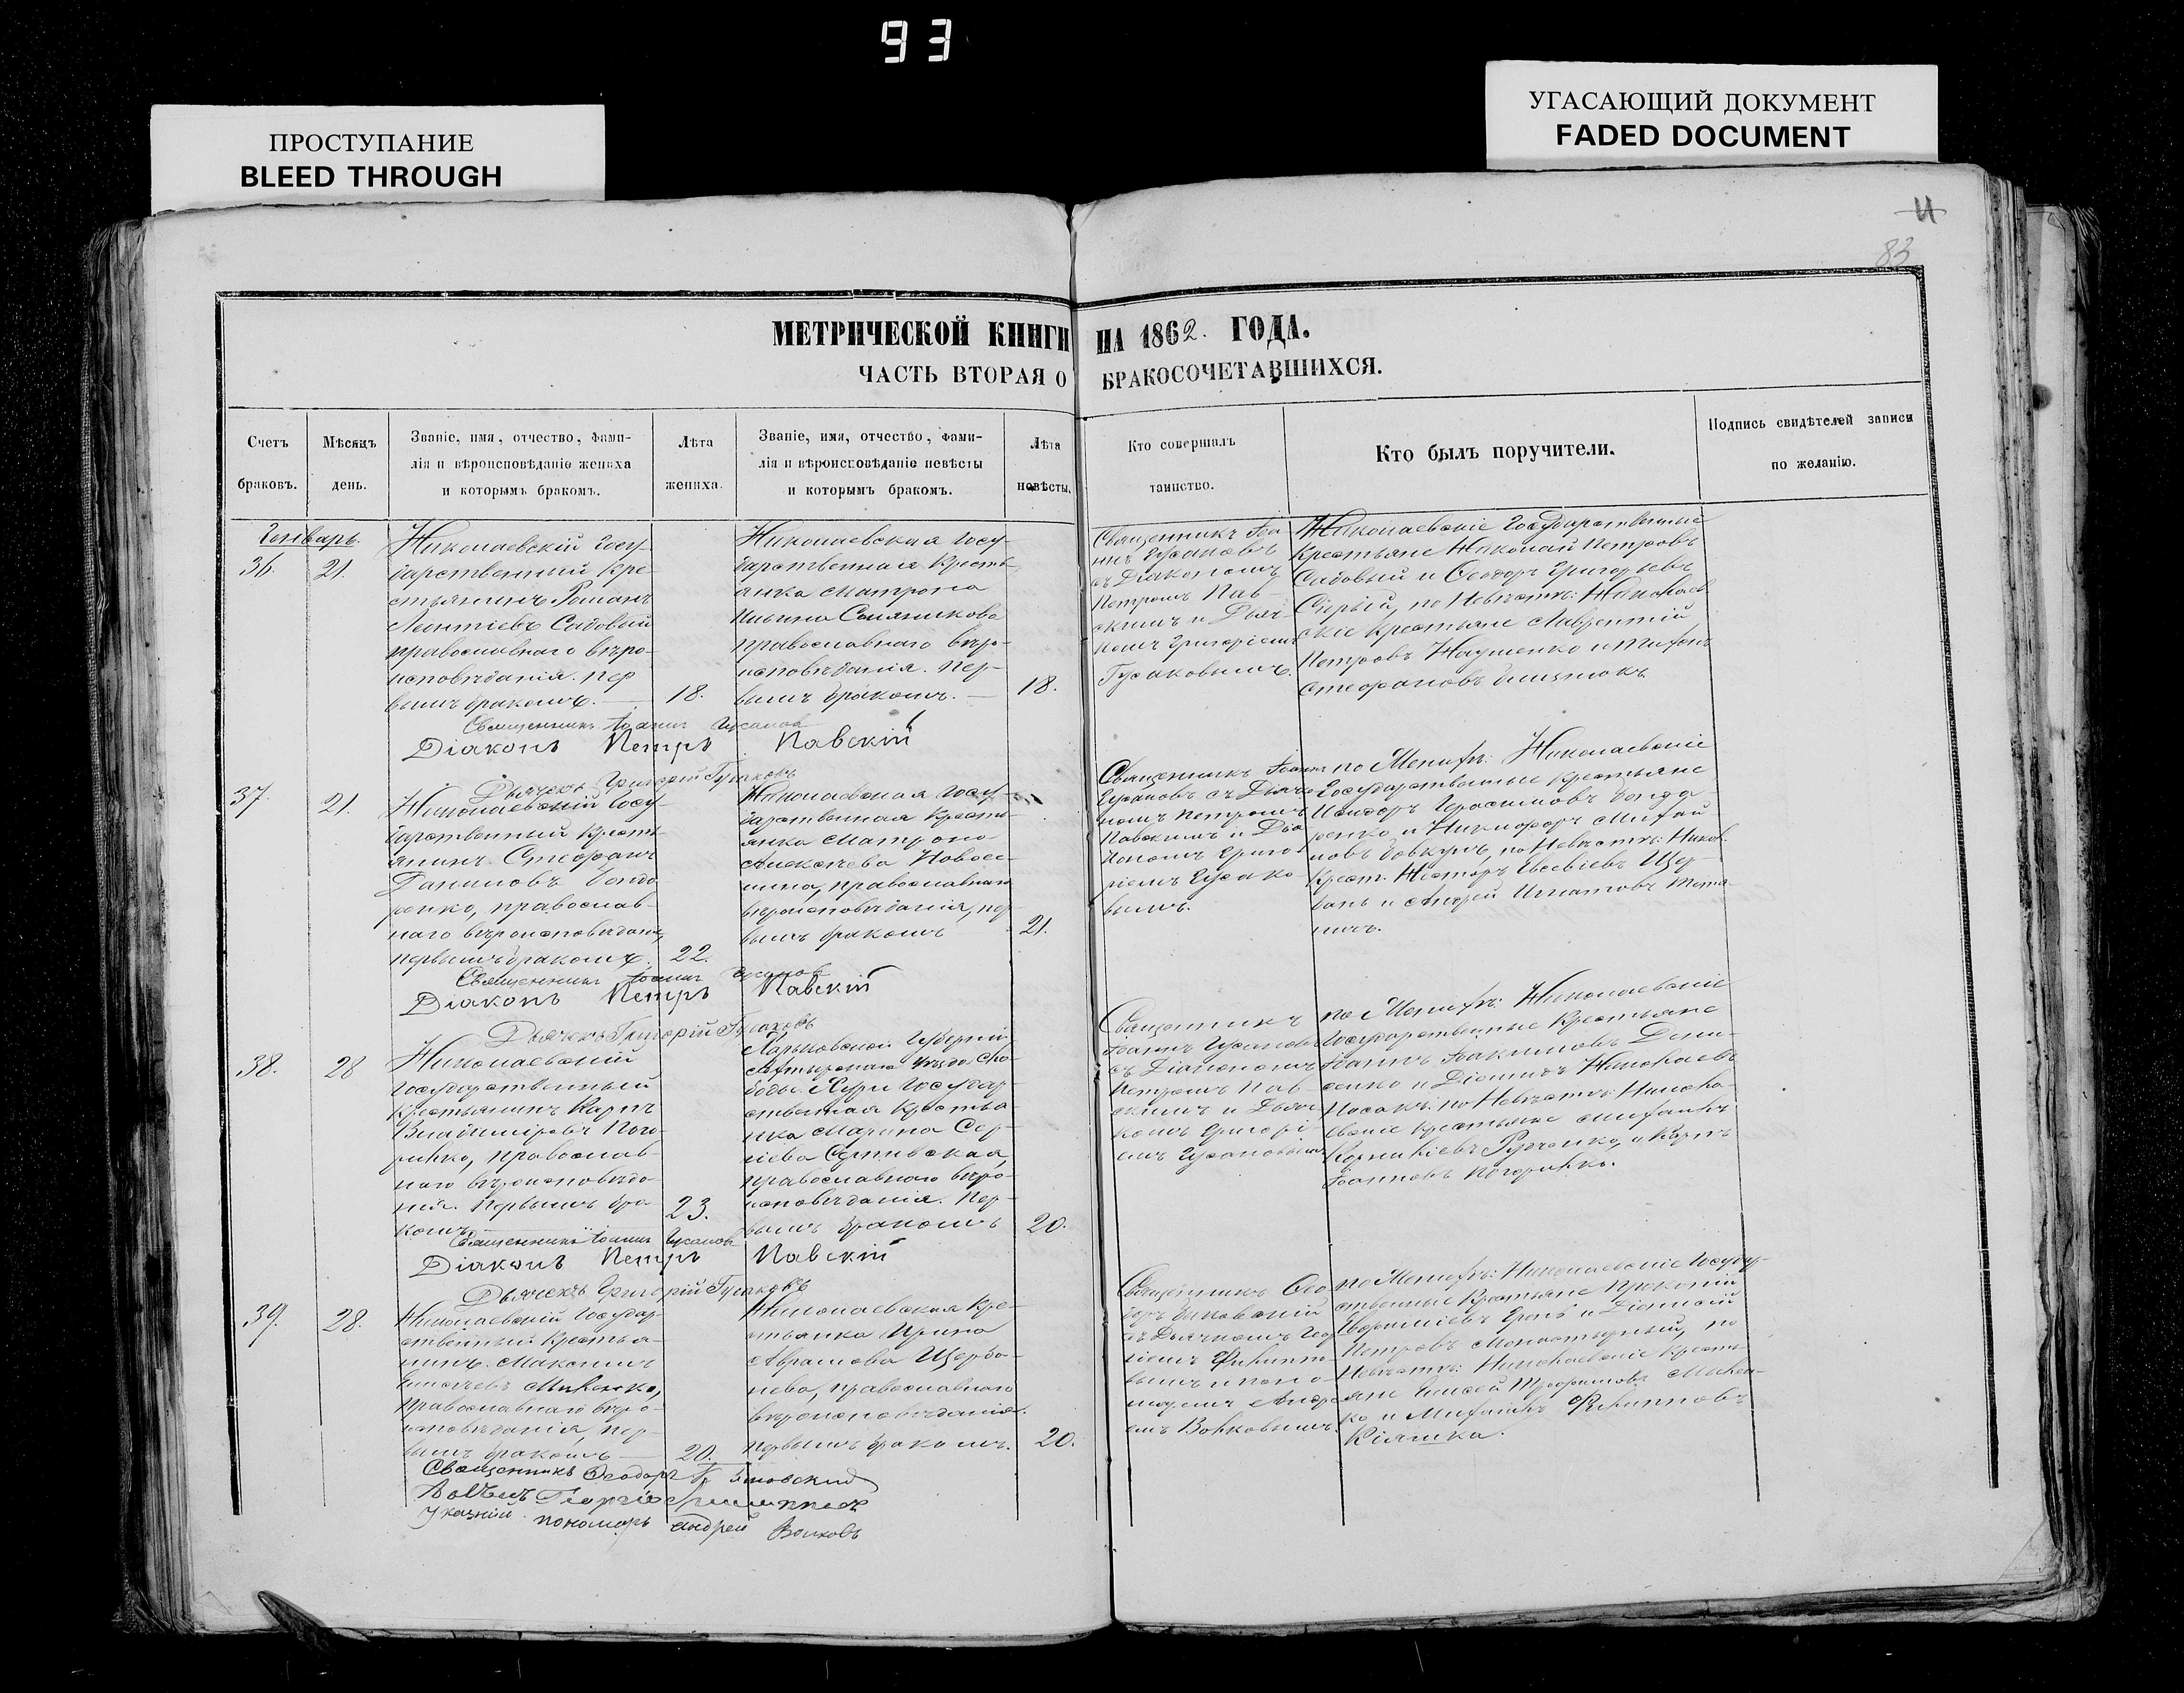 93
ПРОСТУПАНИЕ
BLEED THROUGH
УГАСАЮЩИЙ ДОКУМЕНТ
FADED DOCUMENT
83
МЕТРИЧЕСКОЙ КНИГИ НА 1862. ГОДА.
ЧАСТЬ ВТОРАЯ О БРАКОСОЧЕТАВШИХСЯ.
Счетъ
браковъ.
Мѣсяцъ
день.
Званіе, имя, отчество, фами-
лія и вѣроисповѣданіе жениха
и которымъ бракомъ.
Лѣта
жениха.
Званіе, имя, отчество, фами-
лія и вѣроисповѣданіе невѣсты
и которымъ бракомъ.
Лѣта
невѣсты.
Кто совершалъ
таинство.
Кто былъ поручители.
Подпись свидѣтелей записи
по желанію.
Генварь.
36.
21.
Николаевскій Госу-
дарственный Кре-
стьянинъ Романъ
Леонтіевъ Садовый
православнаго вѣро-
исповѣданія. пер
вымъ бракомъ.
18.
Николаевская Госу-
дарственная Кресть-
янка Матрона
Ильина
православнаго вѣро-
исповѣданія. пер-
вымъ бракомъ.
18.
Священникъ Іоа-
ннъ Гусаковъ
съ Діакономъ
Петромъ Пав-
скимъ и Дьяч-
комъ Григоріемъ
Гусаковымъ.
Николаевскіе Государственные
Крестьяне Николай Петровъ
Садовый и Ѳеодоръ Григорьевъ
Сѣрый, по Невѣстѣ: Николаев
скіе Крестьяне Лаврентій
Петровъ Науменко и
Стефановъ
Священникъ Іоаннъ Гусаковъ
Діаконъ Петръ Павскій
Дьячекъ Григорій Гусаковъ
37.
21.
Николаевскій Госу-
дарственный Кресть-
янинъ Стефанъ
Даниловъ Бонда
ренко, православ-
наго вѣроисповѣдан.
первымъ бракомъ.
22.
Николаевская Госу-
дарственная Кресть-
янка Матрона
Алексѣева Новосе-
лина, православнаго
вѣроисповѣданія, пер
вымъ бракомъ
21.
Священникъ Іоаннъ
Гусаковъ съ Діако-
номъ Петромъ
Павскимъ и Дья
Григо-
ріемъ Гусако-
вымъ.
по Женихѣ: Николаевскіе
Государственные Крестьяне
Исидоръ Герасимовъ Бонда-
ренко и Никифоръ Михай
ловъ Довкунъ, по Невѣстѣ: Никол.
Крест. Несторъ Евсевіевъ Щер-
бань и Андрей Игнатовъ
Священникъ Іоаннъ Гусаковъ
Діаконъ Петръ Павскій
Дьячекъ Григорій Гусаковъ
38.
28
Николаевскій
Государственный
Крестьянинъ Карпъ
Владиміровъ Пого-
рилко, православ-
наго вѣроисповѣда-
нія. первымъ бра-
комъ.
23.
Харьковской Губерніи
Ахтырскаго Уѣзда Сло-
боды Государ-
ственная Крестья-
нка Марина Сер-
гіева
православнаго вѣро-
исповѣданія. пер-
вымъ бракомъ
20.
Священникъ
Іоаннъ Гусаковъ
съ Діакономъ
Петромъ Пав-
скимъ и Дьяч-
комъ Григорі-
емъ Гусаковымъ
по Женихѣ: Николаевскіе
Государственные Крестьяне
Іоаннъ Іоакимовъ Дени-
сенко и Діомидъ Николаевъ
Носакъ. по Невѣстѣ: Никола-
евскіе Крестьяне Михаилъ
Корниліевъ Руденко, и Карпъ
Іоанновъ Погорилко.
Священникъ Іоаннъ Гусаковъ
Діаконъ Петръ Павскій
Дьячекъ Григорій Гусаковъ
39.
28.
Николаевскій Государ-
ственный Крестья-
нинъ Максимъ
Елисѣевъ Михенко,
православнаго вѣро-
исповѣданія, пер-
вымъ бракомъ
20.
Николаевская Кре-
стьянка Ирина
Аврамова Щерба-
нева, православнаго
вѣроисповѣданія.
первымъ бракомъ.
20.
Священникъ Ѳео-
доръ
съ Дьячкомъ Геор
гіемъ Филиппо-
вымъ и поно-
маремъ Андре-
емъ Волковымъ.
по Женихѣ: Николаевскіе Государ-
ственные Крестьяне Прокопій
и Діонисій
Петровъ Монастырный, по
Невѣстѣ: Николаевскіе Кресть-
яне Елисей Трофимовъ Михен-
ко и Михаилъ Филипповъ
Кіяшка.
Священникъ Ѳеодоръ
Георгій
Указный пономарь Андрей Волковъ